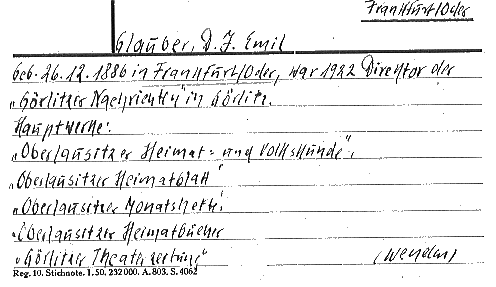 Frankfurt/Oder
Glauber, D. J. Emil
geb. 26.12.1886 in Frankfurt/Oder, war 1922 Direktor der
„Görlitzer Nachrichten" in Görlitz.
Hauptwerke:
„Oberlausitzer Heimat- und Volkskunde".
„Oberlausitzer Heimatblatt"
„Oberlausitzer Monatshefte".
„Oberlausitzer Heimatbücher
„Görlitzer Theaterzeitung"
Reg. 10. Stichnote. 1.50. 232000. A.803. S.4062